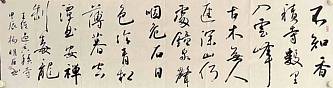 不知香
積寺數里
入雲峰
古木無人
徑深山何
處鐘泉聲
咽危石日
色冷青松
薄暮空
潭曲安禪
制毒龍
王維過香積寺